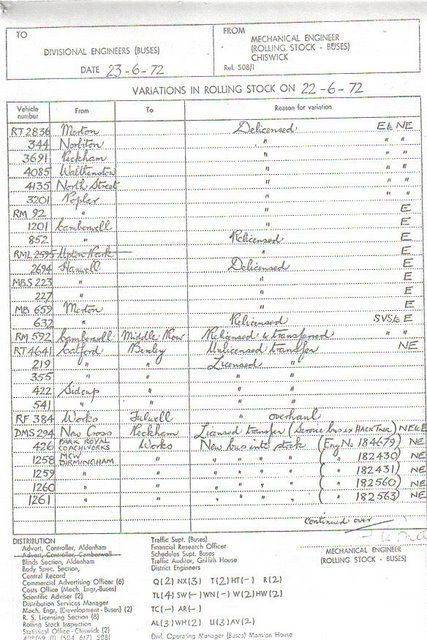 TO
FROM
MECHANICAL ENGINEER
(ROLLING STOCK - BUSES)
CHISWICK
DIVISIONAL ENGINEERS (BUSES)
DATE 23-6-72
Ref. 508/1
VARIATIONS IN ROLLING STOCK ON 22-6-72
Vehicle number From To Reason for variation
RT 2836 Merton Delicensed E & NE
344 Norbiton " " "
3691 Peckham " " "
4085 Walthamstow " " "
4135 North Street " " "
3201 Poplar " " "
RM 92 " " E
1201 Camberwell " E
852 " Relicensed E
RML 2595 Upton Park E
2694 Hanwell Delicensed E
MBS 223 " " E
227 " " E
MB 659 Merton " E
632 " Relicensed SVS & E
RM 592 Camberwell Middle Row Relicensed & transferred " "
RT 4641 Catford Bexley Unlicensed transfer NE
219 " " Licensed "
355 " " " "
422 Sidcup " " "
541 " " " "
RF 384 Works Fulwell " overhaul
DMS 294 New Cross Peckham Licensed transfer (Service bus ex NE & E
426 PARK ROYAL COACHWORKS Works New bus into stock (Eng No 184679) NE
1258 MCW BIRMINGHAM " " " " " ( " 182430) NE
1259 " " " " " " ( " 182431) NE
1260 " " " " " " ( " 182560) NE
1261 " " " " " " ( " 182563) NE
continued over
DISTRIBUTION
Advert. Controller, Aldenham
Advert. Controller, Camberwell
Blinds Section, Aldenham
Body Spec. Section,
Central Record
Commercial Advertising Officer (6)
Costs Office (Mech. Engr-Buses)
Scientific Adviser (2)
Distribution Services Manager
Mech. Engr. (Development - Buses) (2)
R. S. Licensing Section (8)
Rolling Stock Inspection
Statistical Office - Chiswick (2)
Traffic Supt. (Buses)
Financial Research Officer
Schedules Supt. Buses
Traffic Auditor, Griffith House
District Engineers
Q(2) NX(3) T(2) HT(-) R(2)
TL(4) SW(-) WN(-) W(2) HW(2)
TC(-) AR(-)
AL(3) WH(2) U(3) AV(2)
Divl. Operating Manager (Buses) Mansion House
MECHANICAL ENGINEER
(ROLLING STOCK - BUSES)